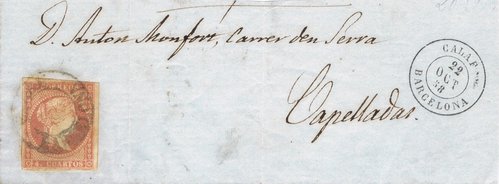 D. Anton Monfort, Carrer den Serra
CALAF
22
OCT
58
BARCELONA
Capelladas.
CORREOS
4 CUARTOS